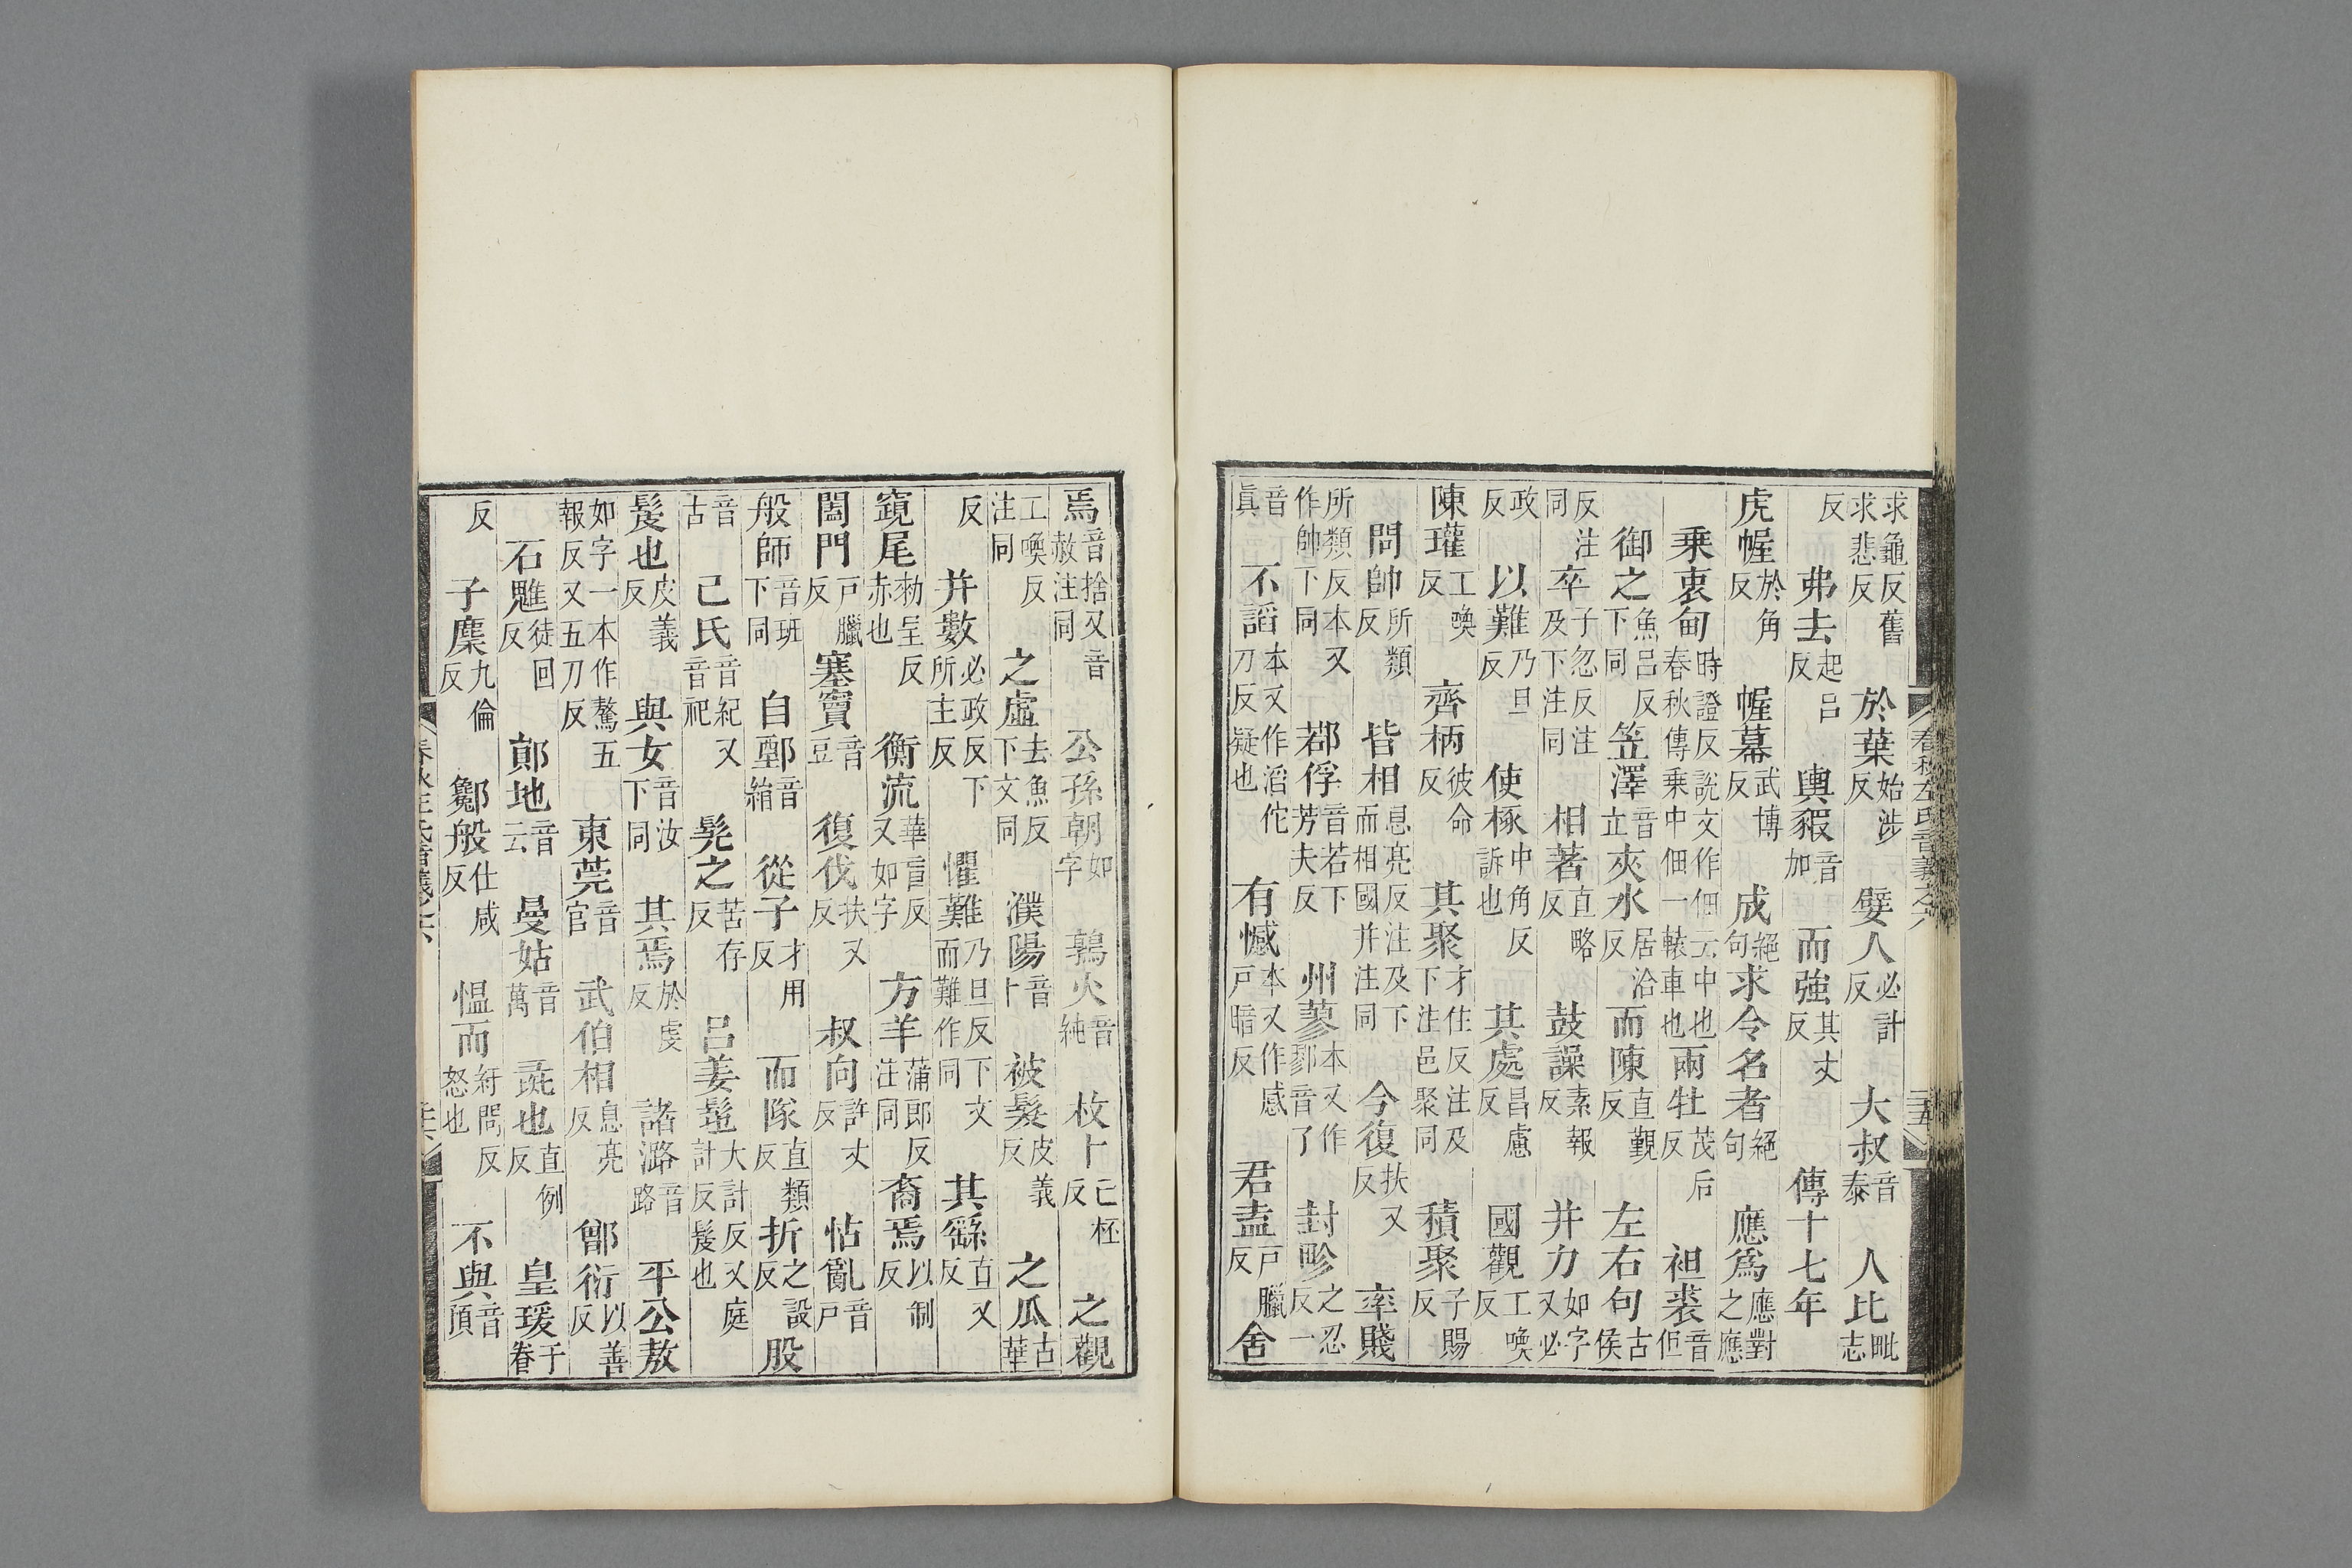 求龜反舊求悲反 於葉始涉反 嬖人必計反 大叔音泰 人比毗志
反 弗去起呂反 輿豭音加 而強其丈反 傳十七年
虎幄於角反 幄幕武博反 成絕句 求令名者絕句 應爲應對之應
乘衷甸時證反說文作佃云中也春秋傳乘中佃一轅車也 兩牡茂后反 袒裘音但
御之魚呂反下同 笠澤音立 夾水居洽反 而陳直覲反 左右句古侯
反注同 卒子忽反注及下注同 相著直略反 鼓譟素報反 并力如字又必
政反 以難乃旦反 使椓中角反訴也 其處昌慮反 國觀工喚反
陳瓘工喚反 齊柄彼命反 其聚才住反注及下注邑聚同 積聚子賜反
問帥所類反 皆相息亮反注及下而相國并注同 今復扶又反 率賤
所類反本又作帥下同 鄀俘音若下芳夫反 州蓼本又作鄝音了 封畛之忍反一
音眞 不謟本又作滔佗刀反疑也 有憾本又作感戶暗反 君盍戶臘反 舍
春秋左氏音義之六
焉音捨又音赦注同 公孫朝如字 鶉火音純 枚卜亡杯反 之觀
工喚反注同 之虛去魚反下文同 濮陽音卜 被髮皮義反 之瓜古華
反 并數必政反下所主反 懼難乃旦反下文而難作同 其繇直又反
窺尾勑呈反赤也 衡流華盲反又如字 方羊蒲郎反注同 裔焉以制反
闔門戶臘反 塞竇音豆 復伐扶又反 叔向許丈反 怙亂音戶
般師音班下同 自鄄音絹 從子才用反 而隊直類反 折之設反 股
音古 己氏音紀又音祀 髡之苦存反 呂姜髢大計反又庭計反髲也
髲也皮義反 與女音汝下同 其焉於虔反 諸潞音路 平公敖
如字一本作驁五報反又五刀反 東莞音官 武伯相息亮反 鄫衍以善反
石魋徒回反 鄖地音云 曼姑音萬 彘也直例反 皇瑗于眷
反 子麇九倫反 酁般仕咸反 慍而紆問反怒也 不與音預
春秋左氏音義之六